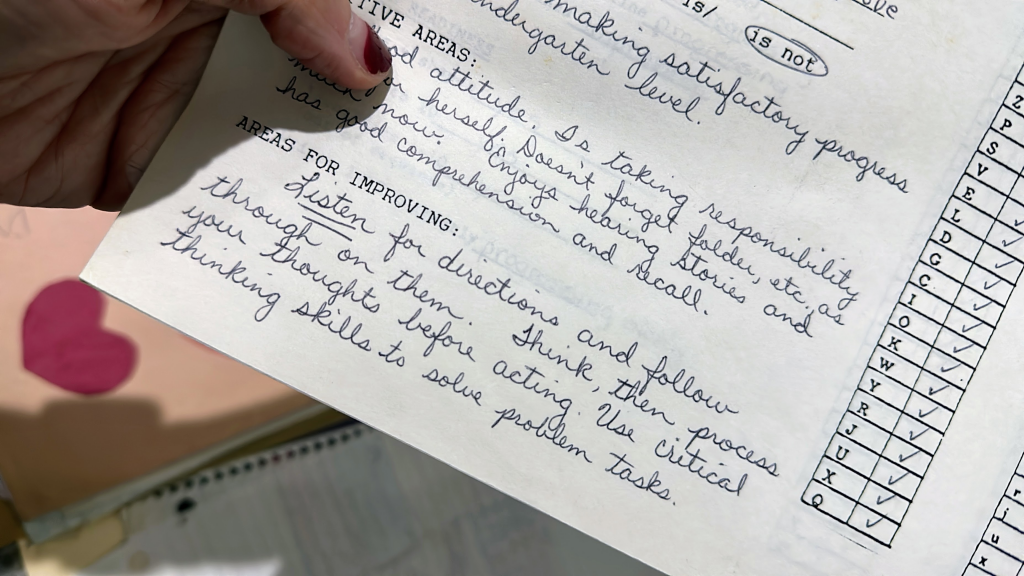 is/
is not
making satisfactory progress
kindergarten level.
TIVE AREAS:
Good attitude. Is taking responsibility
for herself. Doesn't forget folder, etc, as
much now. Enjoys hearing stories and
has good comprehension and recall.
AREAS FOR IMPROVING:
Listen for directions and follow
through on them. Think, then process
your thoughts before acting. Use critical
thinking skills to solve problem tasks.
Z
P
S
V
E
L
D
G
C
I
O
K
W
Y
R
J
U
X
Q
r
j
u
x